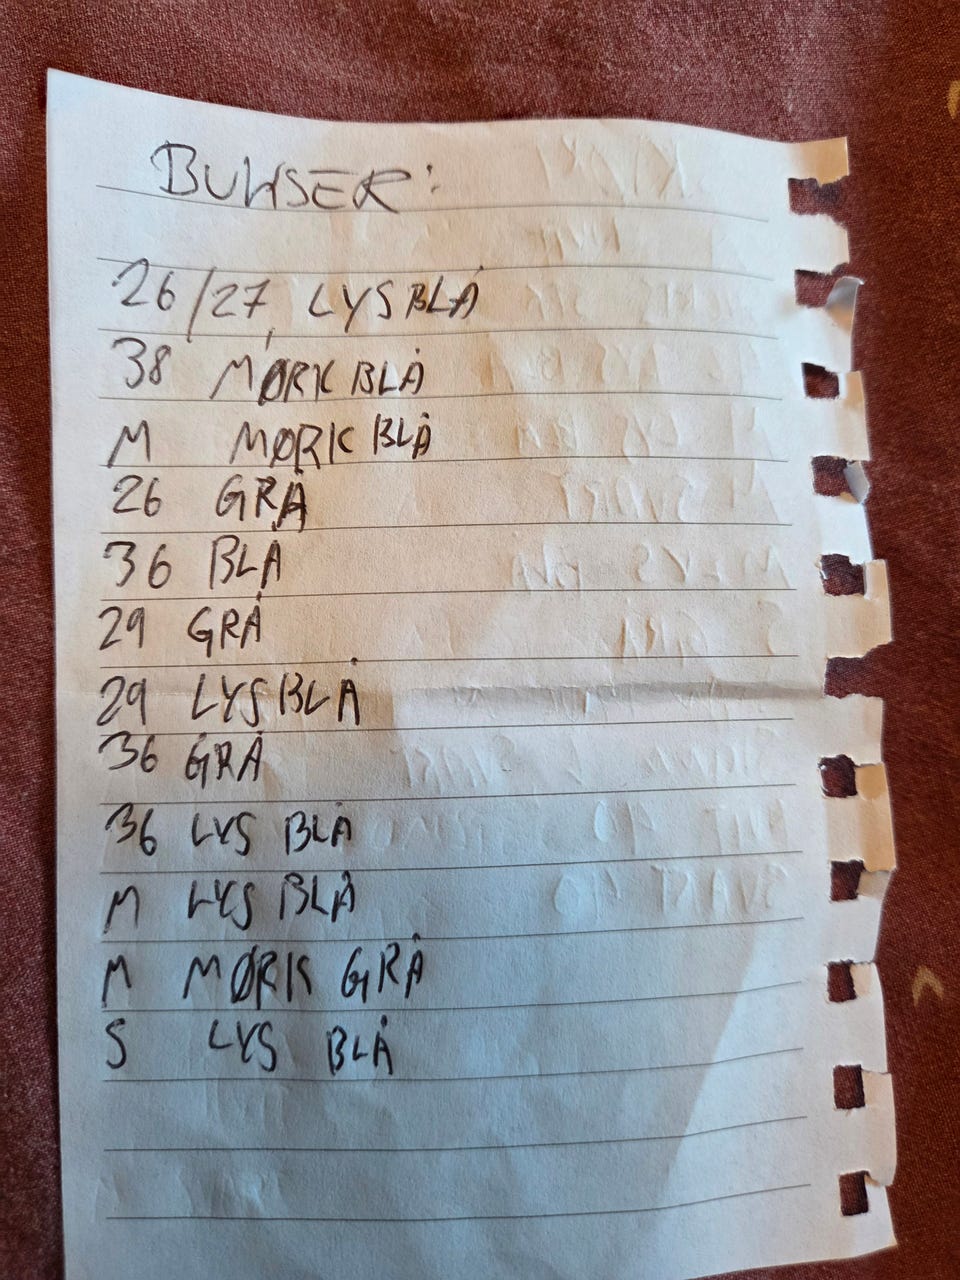 BUKSER:
26/27, LYSBLÅ
38 MØRKBLÅ
M MØRKBLÅ
26 GRÅ
36 BLÅ
29 GRÅ
29 LYSBLÅ
36 GRÅ
36 LYS BLÅ
M LYS BLÅ
M MØRK GRÅ
S LYS BLÅ